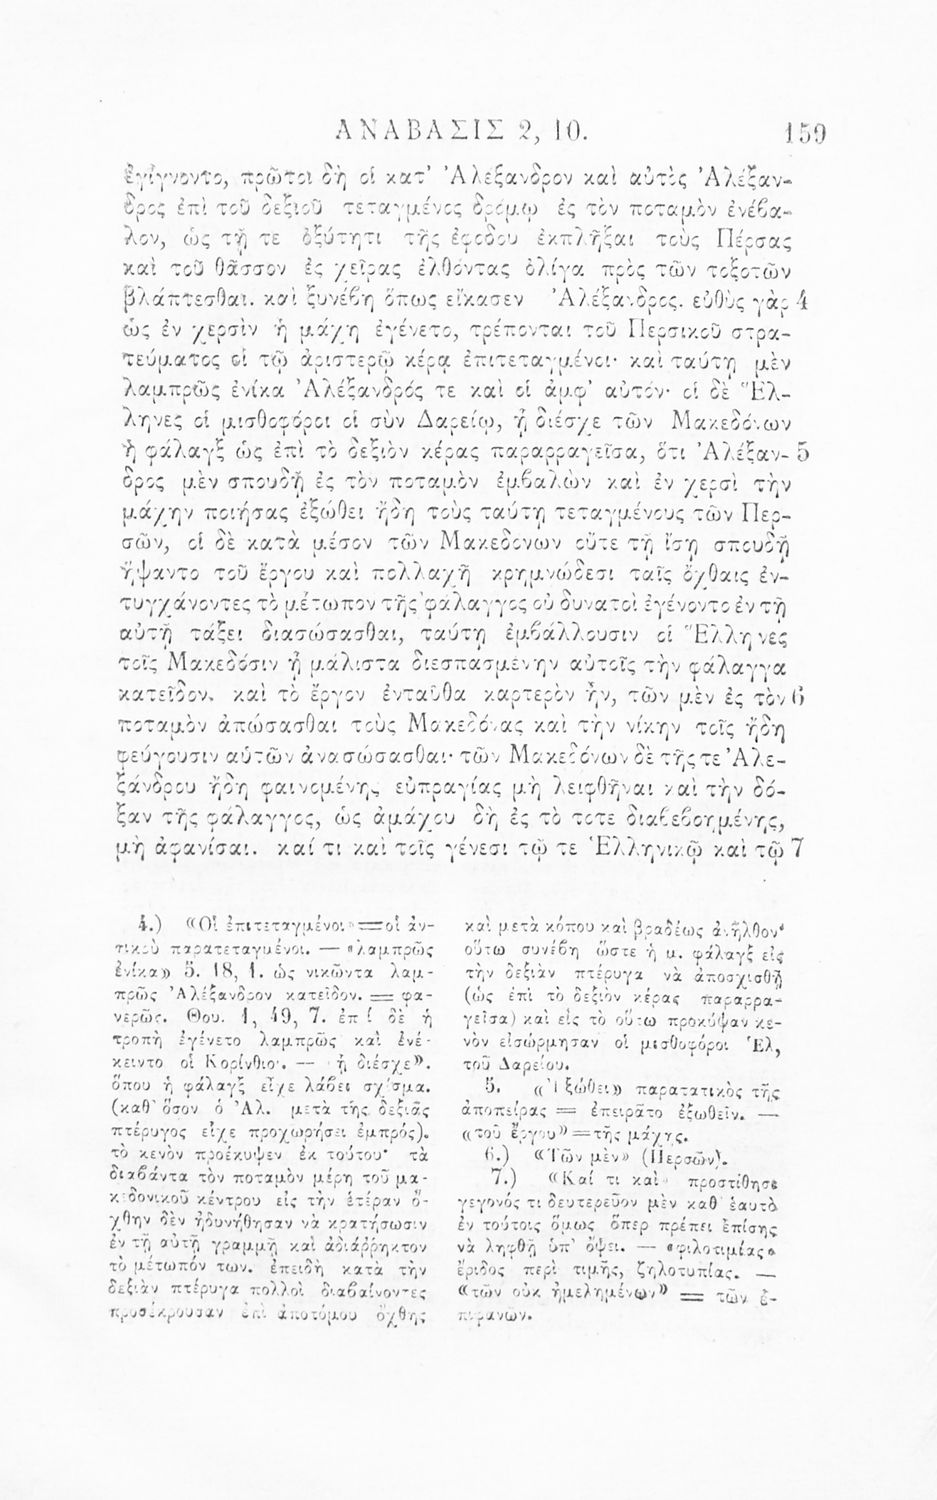 ΑΝΑΒΑΣΙΣ 2, 10. 159
ἐγίγνοντο, πρῶτοι δὴ οἱ κατ’ Ἀλέξανδρον καὶ αὐτὸς Ἀλέξαν-
δρος ἐπὶ τοῦ δεξιοῦ τεταγμένος δρόμῳ ἐς τὸν ποταμὸν ἐνέβα-
λον, ὡς τῇ τε ὀξύτητι τῆς ἐφόδου ἐκπλῆξαι τοὺς Πέρσας
καὶ τοῦ θᾶσσον ἐς χεῖρας ἐλθόντας ὀλίγα πρὸς τῶν τοξοτῶν
βλάπτεσθαι. καὶ ξυνέβη ὅπως εἴκασεν Ἀλέξανδρος. εὐθὺς γὰρ 4
ὡς ἐν χερσὶν ἡ μάχη ἐγένετο, τρέπονται τοῦ Περσικοῦ στρα-
τεύματος οἱ τῷ ἀριστερῷ κέρᾳ ἐπιτεταγμένοι· καὶ ταύτῃ μὲν
λαμπρῶς ἐνίκα Ἀλέξανδρός τε καὶ οἱ ἀμφ’ αὐτόν· οἱ δὲ Ἕλ-
ληνες οἱ μισθοφόροι οἱ σὺν Δαρείῳ, ᾗ διέσχε τῶν Μακεδόνων
ἡ φάλαγξ ὡς ἐπὶ τὸ δεξιὸν κέρας παραρραγεῖσα, ὅτι Ἀλέξαν- 5
δρος μὲν σπουδῇ ἐς τὸν ποταμὸν ἐμβαλὼν καὶ ἐν χερσὶ τὴν
μάχην ποιήσας ἐξώθει ἤδη τοὺς ταύτῃ τεταγμένους τῶν Περ-
σῶν, οἱ δὲ κατὰ μέσον τῶν Μακεδόνων οὔτε τῇ ἴσῃ σπουδῇ
ἥψαντο τοῦ ἔργου καὶ πολλαχῇ κρημνώδεσι ταῖς ὄχθαις ἐν-
τυγχάνοντες τὸ μέτωπον τῆς φάλαγγος οὐ δυνατοὶ ἐγένοντο ἐν τῇ
αὐτῇ τάξει διασώσασθαι, ταύτῃ ἐμβάλλουσιν οἱ Ἕλληνες
τοῖς Μακεδόσιν ᾗ μάλιστα διεσπασμένην αὐτοῖς τὴν φάλαγγα
κατεῖδον. καὶ τὸ ἔργον ἐνταῦθα καρτερὸν ἦν, τῶν μὲν ἐς τὸν 6
ποταμὸν ἀπώσασθαι τοὺς Μακεδόνας καὶ τὴν νίκην τοῖς ἤδη
φεύγουσιν αὐτῶν ἀνασώσασθαι· τῶν Μακεδόνων δὲ τῆς τε Ἀλε-
ξάνδρου ἤδη φαινομένης εὐπραγίας μὴ λειφθῆναι καὶ τὴν δό-
ξαν τῆς φάλαγγος, ὡς ἀμάχου δὴ ἐς τὸ τότε διαβεβοημένης,
μὴ ἀφανίσαι. καί τι καὶ τοῖς γένεσι τῷ τε Ἑλληνικῷ καὶ τῷ 7
4.) «Οἱ ἐπιτεταγμένοι»=οἱ ἀν-
τικρὺ παρατεταγμένοι. — «λαμπρῶς
ἐνίκα» 5. 18, 1. ὡς νικῶντα λαμ-
πρῶς Ἀλέξανδρον κατεῖδον. = φα-
νερῶς. Θου. 1, 49, 7. ἐπεὶ δὲ ἡ
τροπὴ ἐγένετο λαμπρῶς καὶ ἐνέ-
κειντο οἱ Κορίνθιοι. — ᾗ διέσχε».
ὅπου ἡ φάλαγξ εἶχε λάβει σχίσμα.
(καθ’ ὅσον ὁ Ἀλ. μετὰ τῆς δεξιᾶς
πτέρυγος εἶχε προχωρήσει ἐμπρός).
τὸ κενὸν προέκυψεν ἐκ τούτου· τὰ
διαβάντα τὸν ποταμὸν μέρη τοῦ μα-
κεδονικοῦ κέντρου εἰς τὴν ἑτέραν ὄ-
χθην δὲν ἠδυνήθησαν νὰ κρατήσωσιν
ἐν τῇ αὐτῇ γραμμῇ καὶ ἀδιάρρηκτον
τὸ μέτωπόν των. ἐπειδὴ κατὰ τὴν
δεξιὰν πτέρυγα πολλοὶ διαβαίνοντες
προσέκρουσαν ἐπὶ ἀποτόμου ὄχθης
καὶ μετὰ κόπου καὶ βραδέως ἀνῆλθον·
οὕτω συνέβη ὥστε ἡ μ. φάλαγξ εἰς
τὴν δεξιὰν πτέρυγα νὰ ἀποσχισθῇ
(ὡς ἐπὶ τὸ δεξιὸν κέρας παραρρα-
γεῖσα) καὶ εἰς τὸ οὕτω προκύψαν κε-
νὸν εἰσώρμησαν οἱ μισθοφόροι Ἑλ,
τοῦ Δαρείου.
5. «Ἐξώθει» παρατατικὸς τῆς
ἀποπείρας = ἐπειρᾶτο ἐξωθεῖν. —
«τοῦ ἔργου»=τῆς μάχης.
6.) «Τῶν μὲν» (Περσῶν).
7.) «Καί τι καὶ» προστίθησι
γεγονός τι δευτερεῦον μὲν καθ’ ἑαυτὸ
ἐν τούτοις ὅμως ὅπερ πρέπει ἐπίσης
νὰ ληφθῇ ὑπ’ ὄψει. — «φιλοτιμίας»
ἔριδος περὶ τιμῆς, ζηλοτυπίας. —
«τῶν οὐκ ἠμελημένων» = τῶν ἐ-
πιφανῶν.